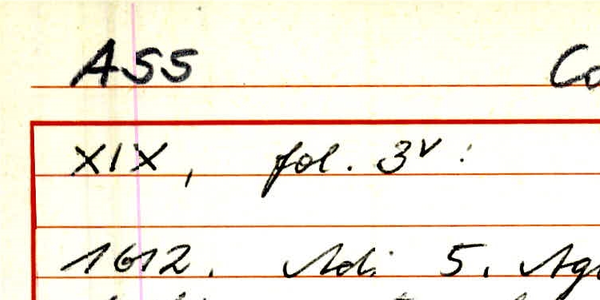 ASS Co
XIX, fol. 3v:
1612. Adi 5. Ag